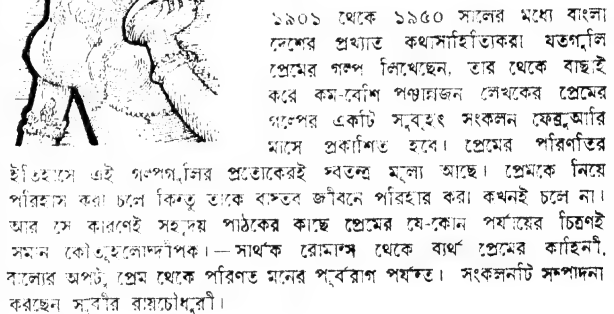 ১৯০১ থেকে ১৯৫০ সালের মধ্যে বাংলা
দেশের প্রখ্যাত কথাসাহিত্যিকরা যতগুলি
প্রেমের গল্প লিখেছেন, তার থেকে বাছাই
করে কম-বেশি পঞ্চান্নজন লেখকের প্রেমের
গল্পের একটি সুবৃহৎ সংকলন ফেব্রুআরি
মাসে প্রকাশিত হবে। প্রেমের পরিণতির
ইতিহাসে এই গল্পগুলির প্রত্যেকেরই স্বতন্ত্র মূল্য আছে। প্রেমকে নিয়ে
পরিহাস করা চলে কিন্তু তাকে বাস্তব জীবনে পরিহার করা কখনই চলে না।
আর সে কারণেই সহৃদয় পাঠকের কাছে প্রেমের যে-কোন পর্যায়ের চিত্রণই
সমান কৌতূহলোদ্দীপক।—সার্থক রোমান্স থেকে ব্যর্থ প্রেমের কাহিনী,
বাল্যের অপটু প্রেম থেকে পরিণত মনের পূর্বরাগ পর্যন্ত। সংকলনটি সম্পাদনা
করছেন সুবীর রায়চৌধুরী।